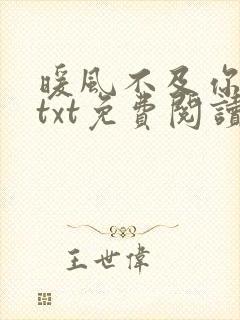 暖風不及你
txt免費閱讀
王世偉